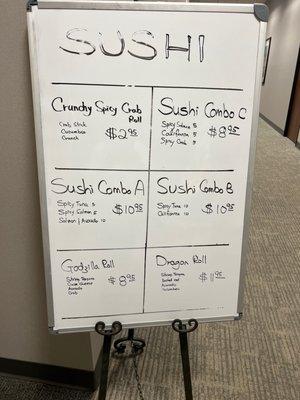 SUSHI
Crunchy Spicy Crab
Roll
Crab Stick
Cucumber
Crunch
$2.95
Sushi Combo C
Spicy Salmon 5
California 5
Spicy Crab 5
$8.95
Sushi Combo A
Spicy Tuna 5
Spicy Salmon 5
Salmon / Avocado 10
$10.95
Sushi Combo B
Spicy Tuna 10
California 10
$10.95
Godzilla Roll
Shrimp Tempura
Cream Cheese
Avocado
Crab
$8.95
Dragon Roll
Shrimp Tempura
Avocado
Cucumber